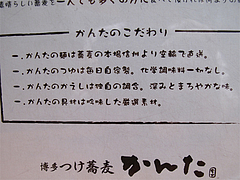 かんたのこだわり
一.かんたの麺は蕎麦の本場信州より空輸で直送。
一.かんたのつゆは毎日自家製。化学調味料一切なし。
一.かんたのかえしは独自の調合。深みとまろやかな味。
一.かんたの具材は吟味した厳選素材。
博多つけ蕎麦 かんた